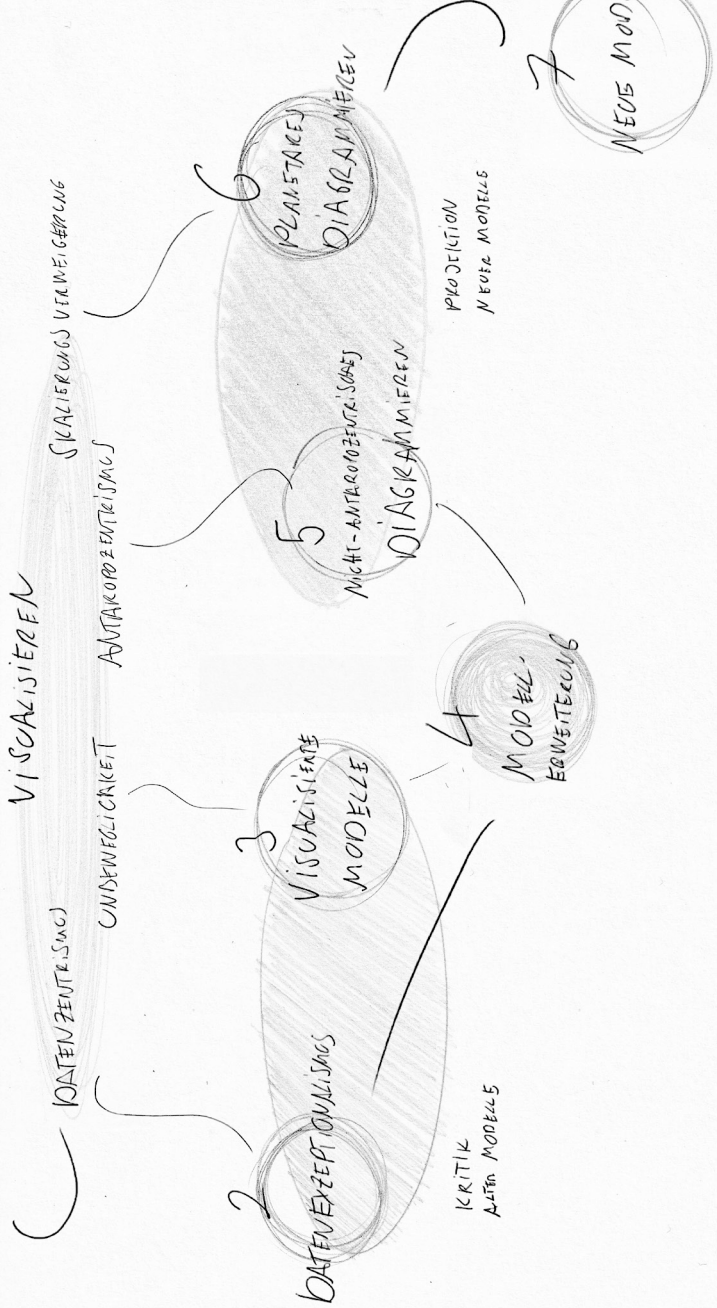 VISUALISIEREN
DATENZENTRISMUS
UNBEWEGLICHKEIT
ANTHROPOZENTRISMUS
SKALIERUNGSVERWEIGERUNG
2
DATENEXZEPTIONALISMUS
3
VISUALISIERTE
MODELLE
KRITIK
ALTER MODELLE
4
MODELL-
ERWEITERUNG
5
NICHT-ANTHROPOZENTRISCHES
DIAGRAMMIEREN
6
PLANETARES
DIAGRAMMIEREN
PROJEKTION
NEUER MODELLE
7
NEUE MOD